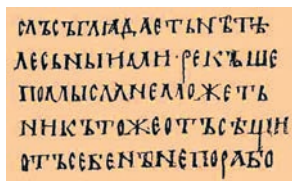 СЛЪСЪГЛѦДАЕТЬНЪТѢ
ЛЕСЬНЫИМИ·РЕКЪШЕ
ПОМЫСЛАНЕМОЖЕТЬ
НИКЪТОЖЕОТЪСѪЩИН
ОТЪСЕБЕНЪНЕПОРАБО